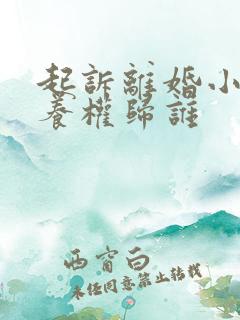 起訴離婚小
養權歸誰
西窗白
未经同意禁止转载